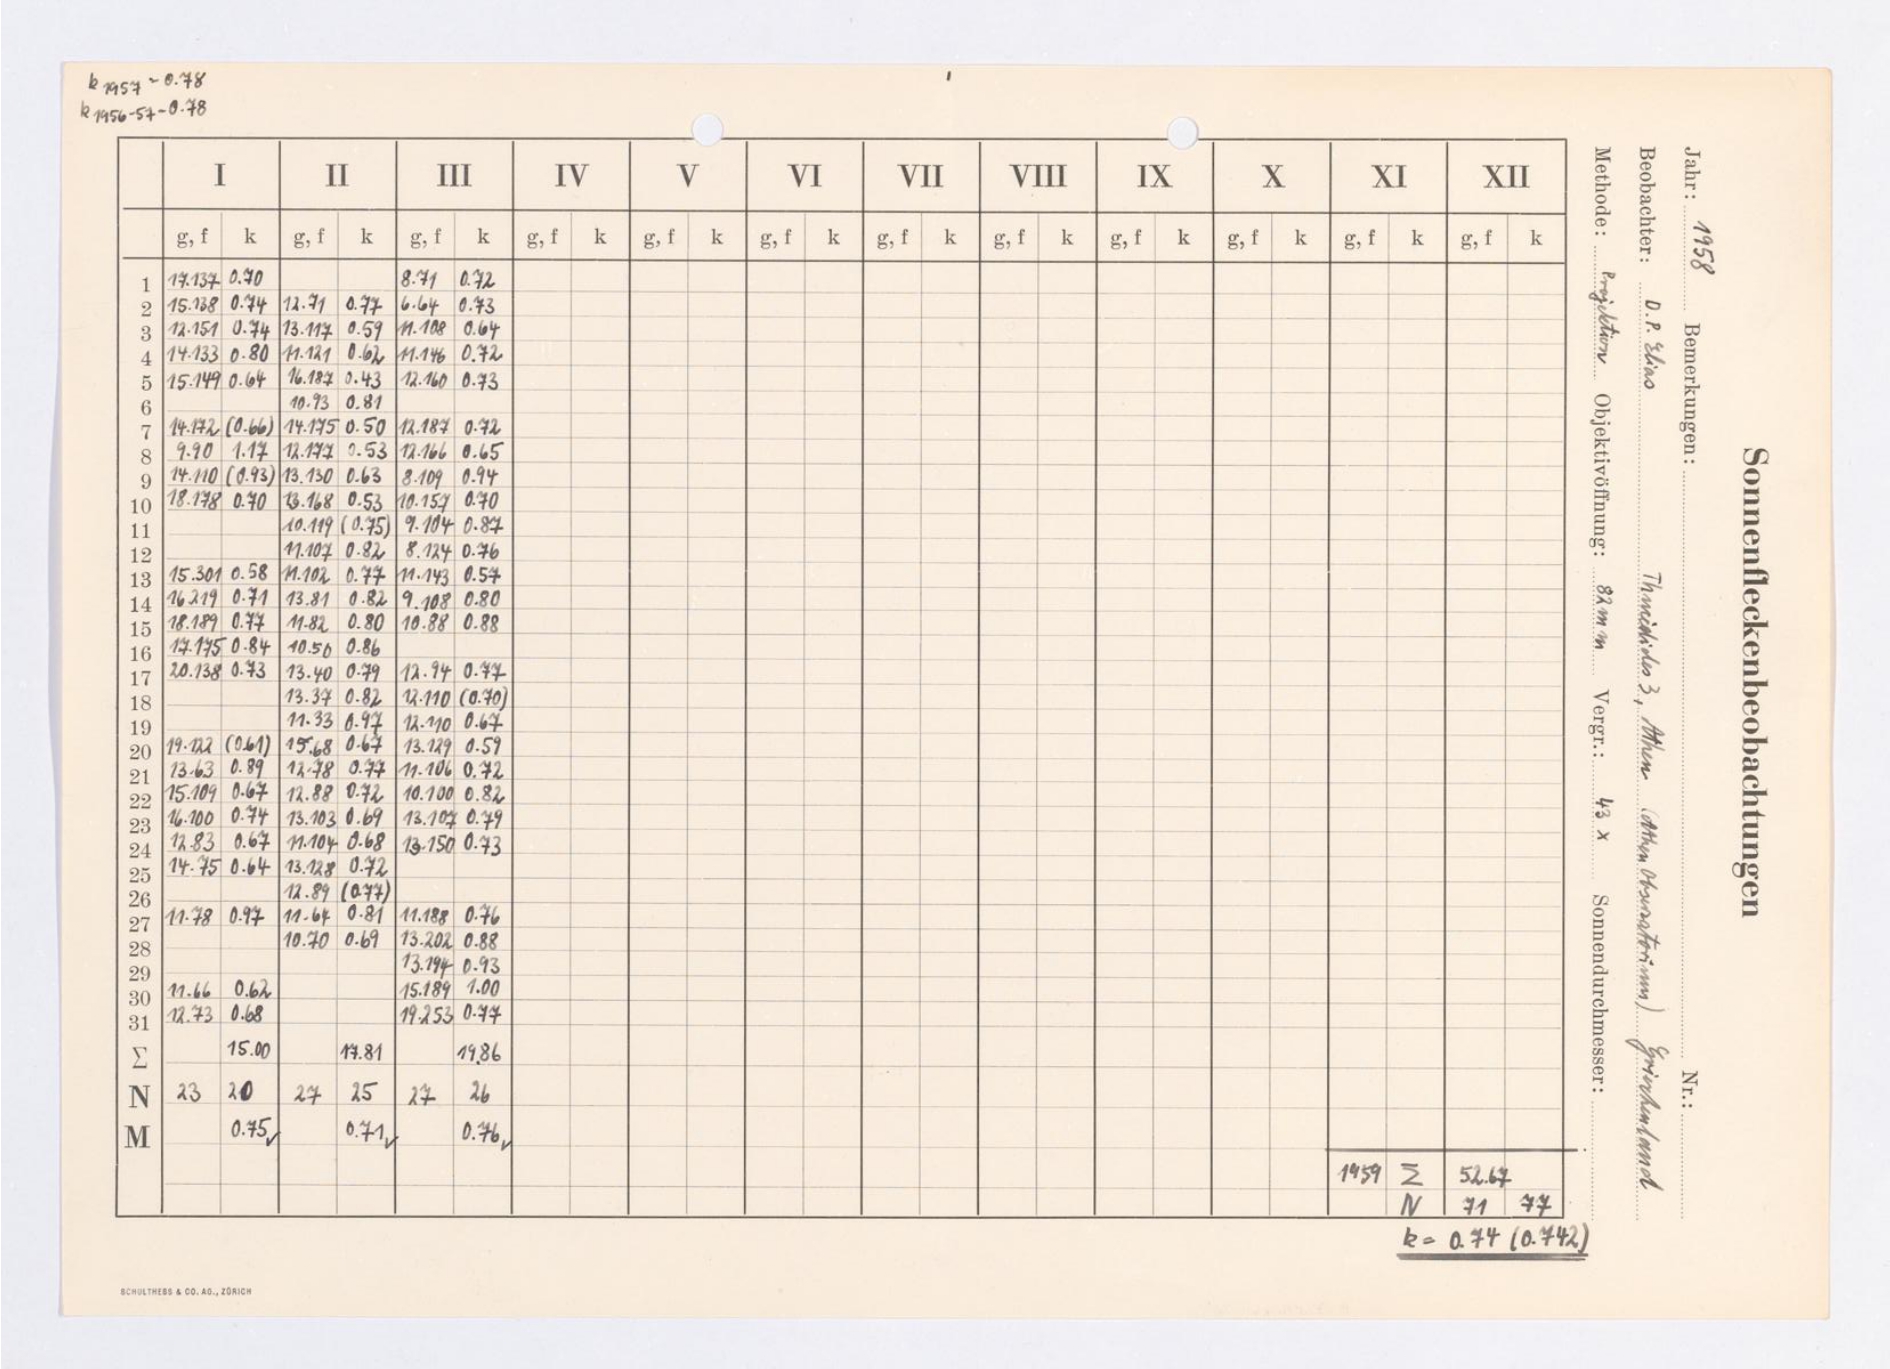 k 1957 = 0.78
k 1956-57 = 0.78
Sonnenfleckenbeobachtungen
Jahr: 1958 Bemerkungen: Nr.:
Beobachter: D. P. Elias Athen Griechenland
Methode: Projektion Objektivöffnung: 82 mm Vergr.: 43 x Sonnendurchmesser:
I II III IV V VI VII VIII IX X XI XII
g, f k g, f k g, f k g, f k g, f k g, f k g, f k g, f k g, f k g, f k g, f k g, f k
1 17.137 0.70 8.71 0.72
2 15.138 0.74 12.71 0.77 6.64 0.73
3 12.151 0.74 13.117 0.59 11.108 0.64
4 14.133 0.80 11.121 0.62 11.146 0.72
5 15.149 0.64 16.187 0.43 12.160 0.73
6 10.93 0.81
7 14.172 (0.66) 14.175 0.50 12.187 0.72
8 9.90 1.17 12.177 0.53 12.166 0.65
9 14.110 (0.93) 13.130 0.63 8.109 0.94
10 18.178 0.70 13.168 0.53 10.157 0.70
11 10.119 (0.75) 9.104 0.87
12 11.107 0.82 8.124 0.76
13 15.301 0.58 11.102 0.77 11.143 0.57
14 16.219 0.71 13.81 0.82 9.108 0.80
15 18.189 0.77 11.82 0.80 10.88 0.88
16 17.175 0.84 10.50 0.86
17 20.138 0.73 13.40 0.79 12.94 0.77
18 13.37 0.82 12.110 (0.70)
19 11.33 0.97 12.110 0.67
20 19.122 (0.61) 15.68 0.67 13.129 0.59
21 13.63 0.89 12.78 0.77 11.106 0.72
22 15.109 0.67 12.88 0.72 10.100 0.82
23 16.100 0.74 13.103 0.69 13.107 0.79
24 12.83 0.67 11.104 0.68 13.150 0.73
25 14.75 0.64 13.128 0.72
26 12.89 (0.77)
27 11.78 0.97 11.64 0.81 11.188 0.76
28 10.70 0.69 13.202 0.88
29 13.194 0.93
30 11.66 0.62 15.189 1.00
31 12.73 0.68 19.253 0.77
Σ 15.00 17.81 19.86
N 23 20 27 25 27 26
M 0.75 0.71 0.76
1959 Σ 52.67
N 71 77
k = 0.74 (0.742)
SCHULTHESS & CO. AG., ZÜRICH